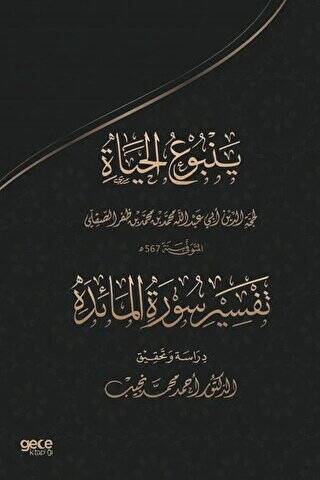 ينبوع الحياة
لحجة الدين أبي عبد الله محمد بن محمد بن ظفر الصقلي
المتوفى سنة 567 هـ
تفسير سورة المائدة
دراسة وتحقيق
الدكتور أحمد محمد نجيب
gece
kitaplığı